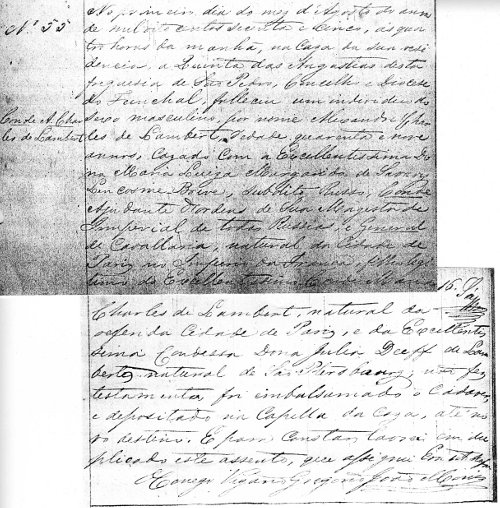 Nº 55
Conde A. Char
les de Lambert
No primeiro dia do mez d'Agosto do anno
de mil oito centos secenta e cinco, ás qua
tro horas da manhã, na caza da sua resi
dencia, a Quinta das Angustias desta
freguesia de São Pedro, Concelho e Diocese
do Funchal, falleceu um individuo do
sexo masculino, por nome Alexandre Char
les de Lambert, d'edade, quarenta e nove
annos, cazado com a Excellentissima Do
na Maria Luiza
subdito Russo, Conde
Ajudante d'ordens de Sua Magestade
Imperial de todas Russias, e General
de Cavallaria, natural da Cidade de
Pariz no Imperio da França, filho legi
timo do Excellentissimo Conde
16.
Charles de Lambert, natural da
referida Cidade de Pariz, e da Excellentis
sima Condessa Dona Julia Deeff de Lam
bert, natural de São Petersbourg; fez
testamento, foi imbalsumado o Cadaver
e depositado na Capella da Caza, até no
vo destino. E para constar lavrei em du
plicado este assento, que assignei. Era ut supra
O Conego Vigario Gregorio João